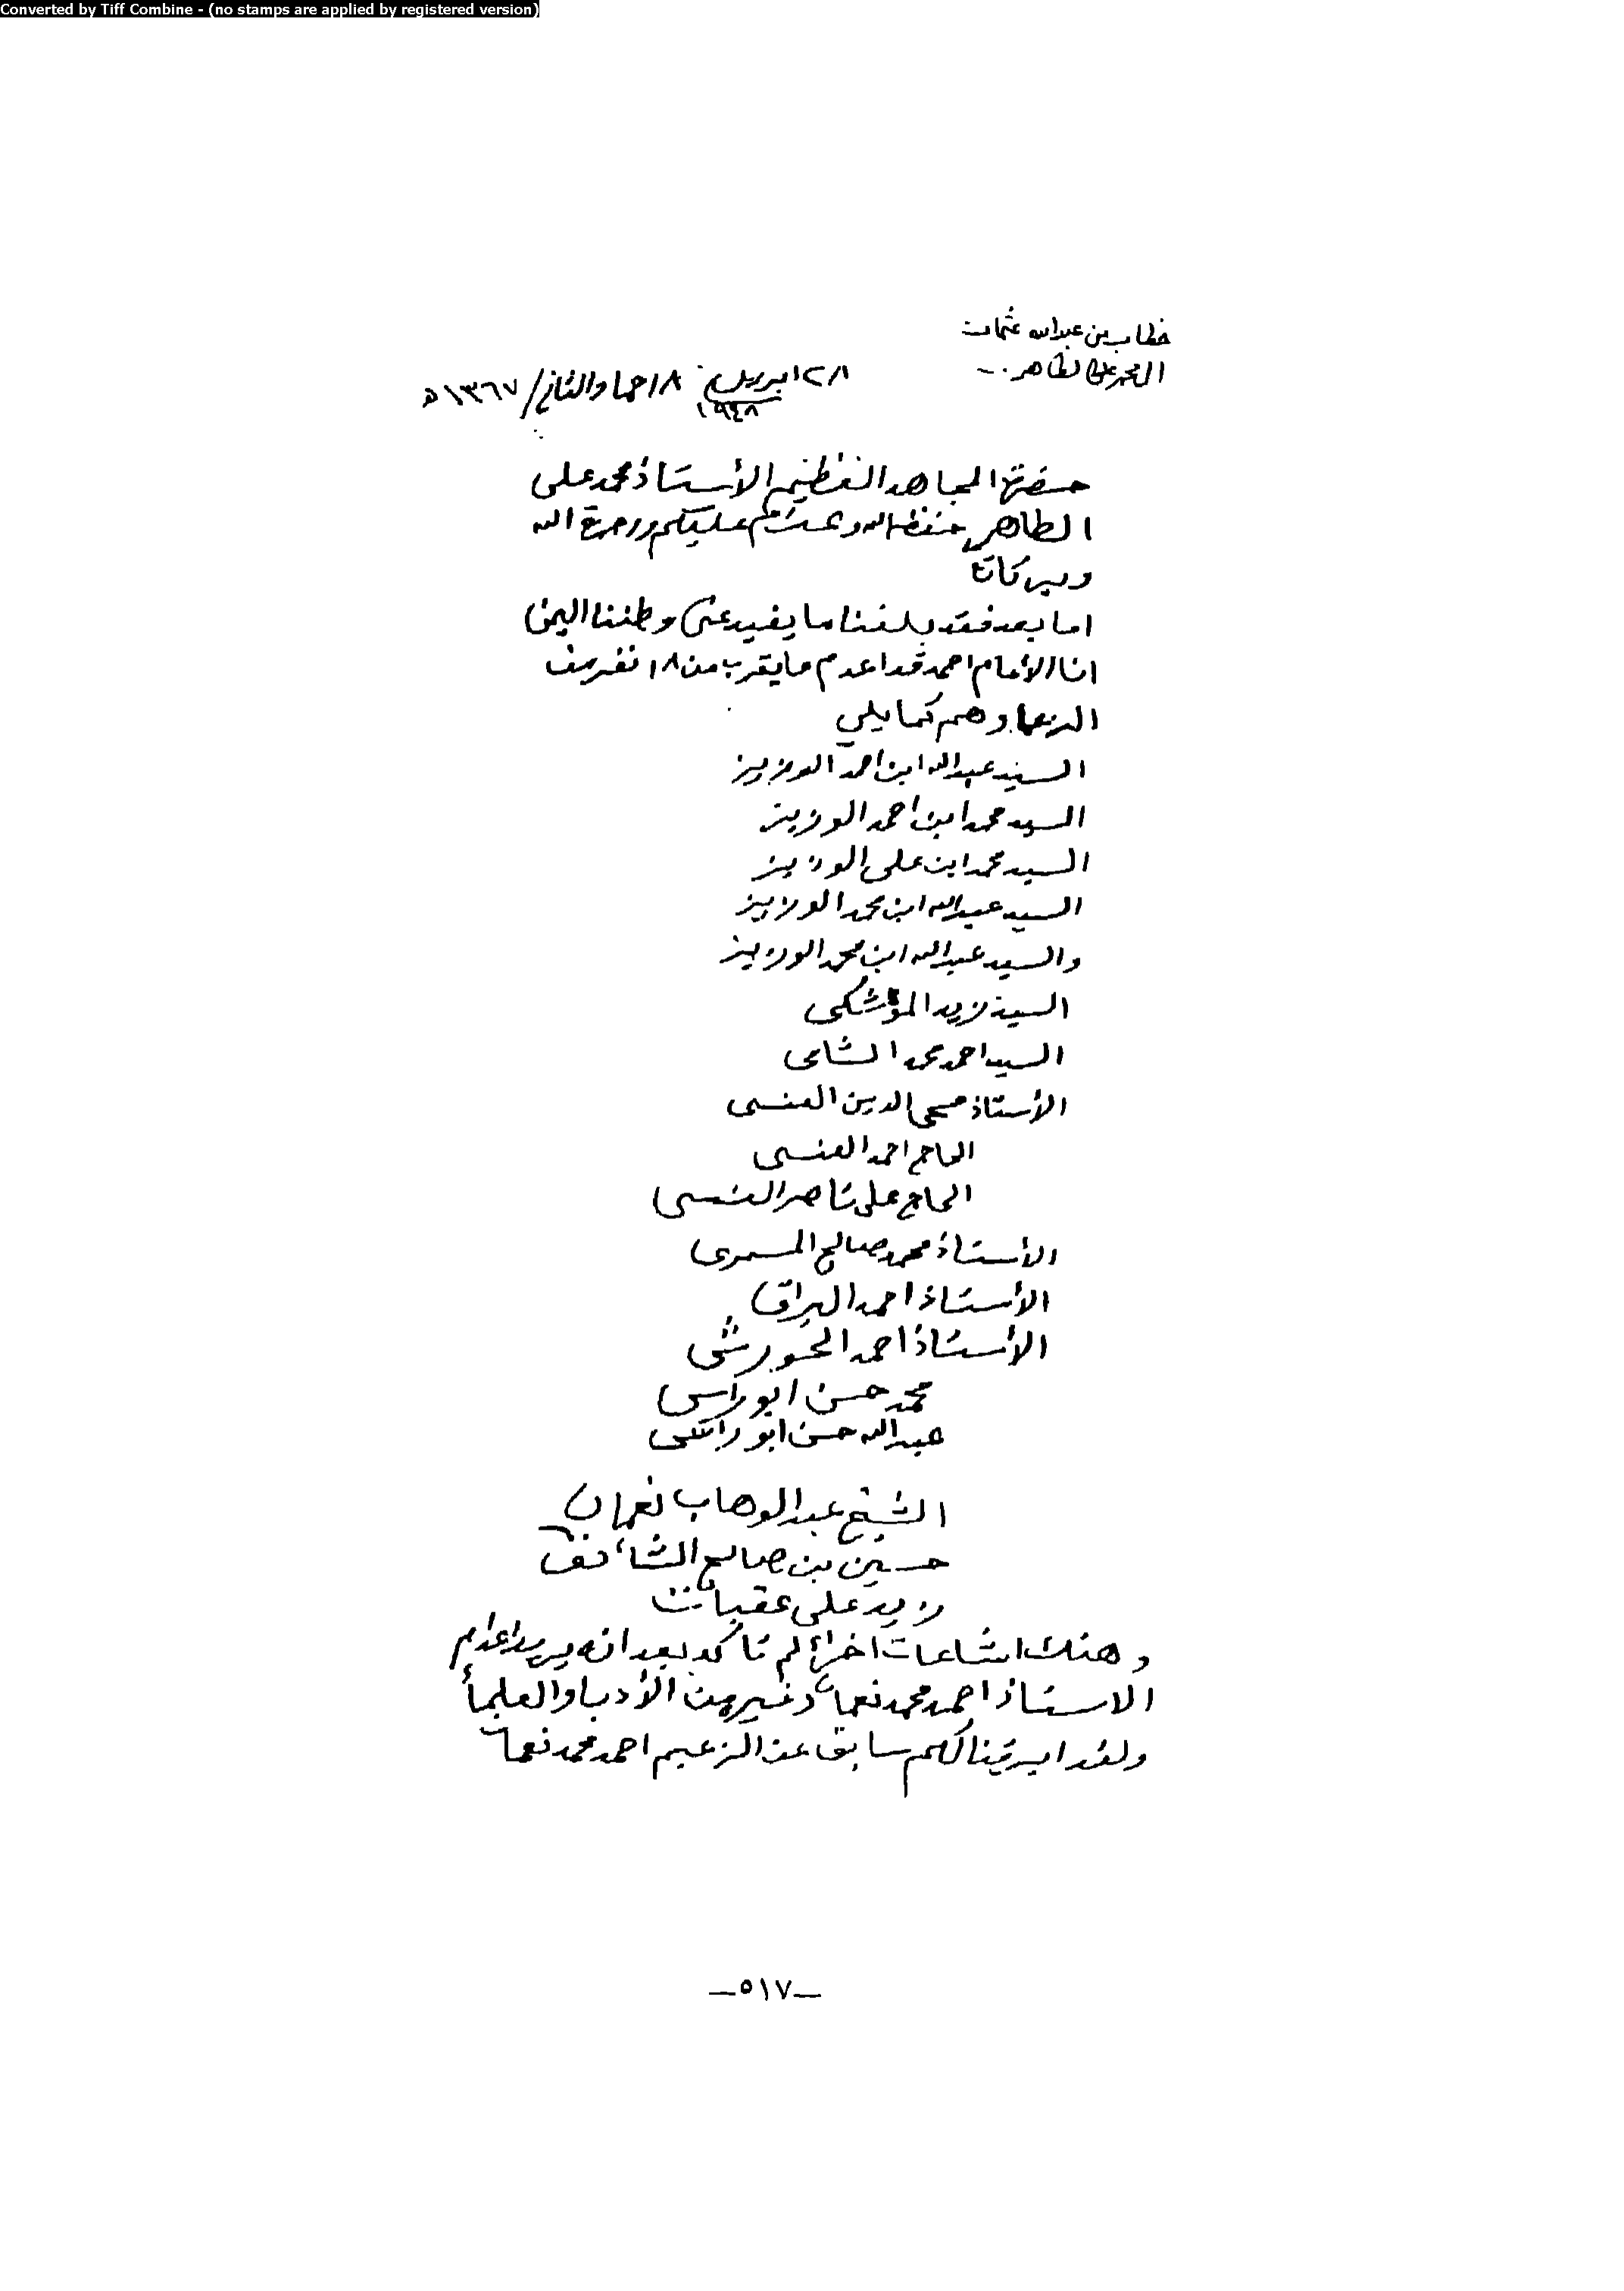 Converted by Tiff Combine - (no stamps are applied by registered version)
خطاب من عبدالله عثمان
الى محمد علي الطاهر
٢٨ ابريل ١٩٤٨ ١٨ جماد الثاني / ١٣٦٧ه
حضرة المجاهد العظيم الأستاذ محمد على
الطاهر حفظه الله وعليكم ورحمة الله
وبركاته
اما بعد فقد بلغنا ما يفيد عن وطننا اليمن
ان الأمام احمد قد اعدم ما يقرب من ١٨ نفر من
الزعما وهم كما يلي
السيد عبدالله ابن احمد الوزير
السيد محمد ابن احمد الوزير
السيد محمد ابن على الوزير
السيد عبدالله ابن محمد الوزير
والسيد عبدالله ابن محمد الوزير
السيد زيد الموشكى
السيد احمد محمد الشامى
الأستاذ محى الدين العنسى
الحاج احمد العنسى
الحاج على ناصر العنسى
الأستاذ محمد صالح المسمرى
الأستاذ احمد البراق
الأستاذ احمد الحورشى
محمد حسن ابوراس
عبدالله حسن ابوراس
الشيخ عبدالوهاب نعمان
حسين بن صالح الشائف
زيد على عقبات
وهناك اشاعات اخرى لم تأكد بعد انه يريد اعدام
الاستاذ احمد محمد نعمان وغيره من الأدبا والعلمأ
ولقد ابرقنا لكم سابق عن الزعيم احمد محمد نعمان
—٥١٧—